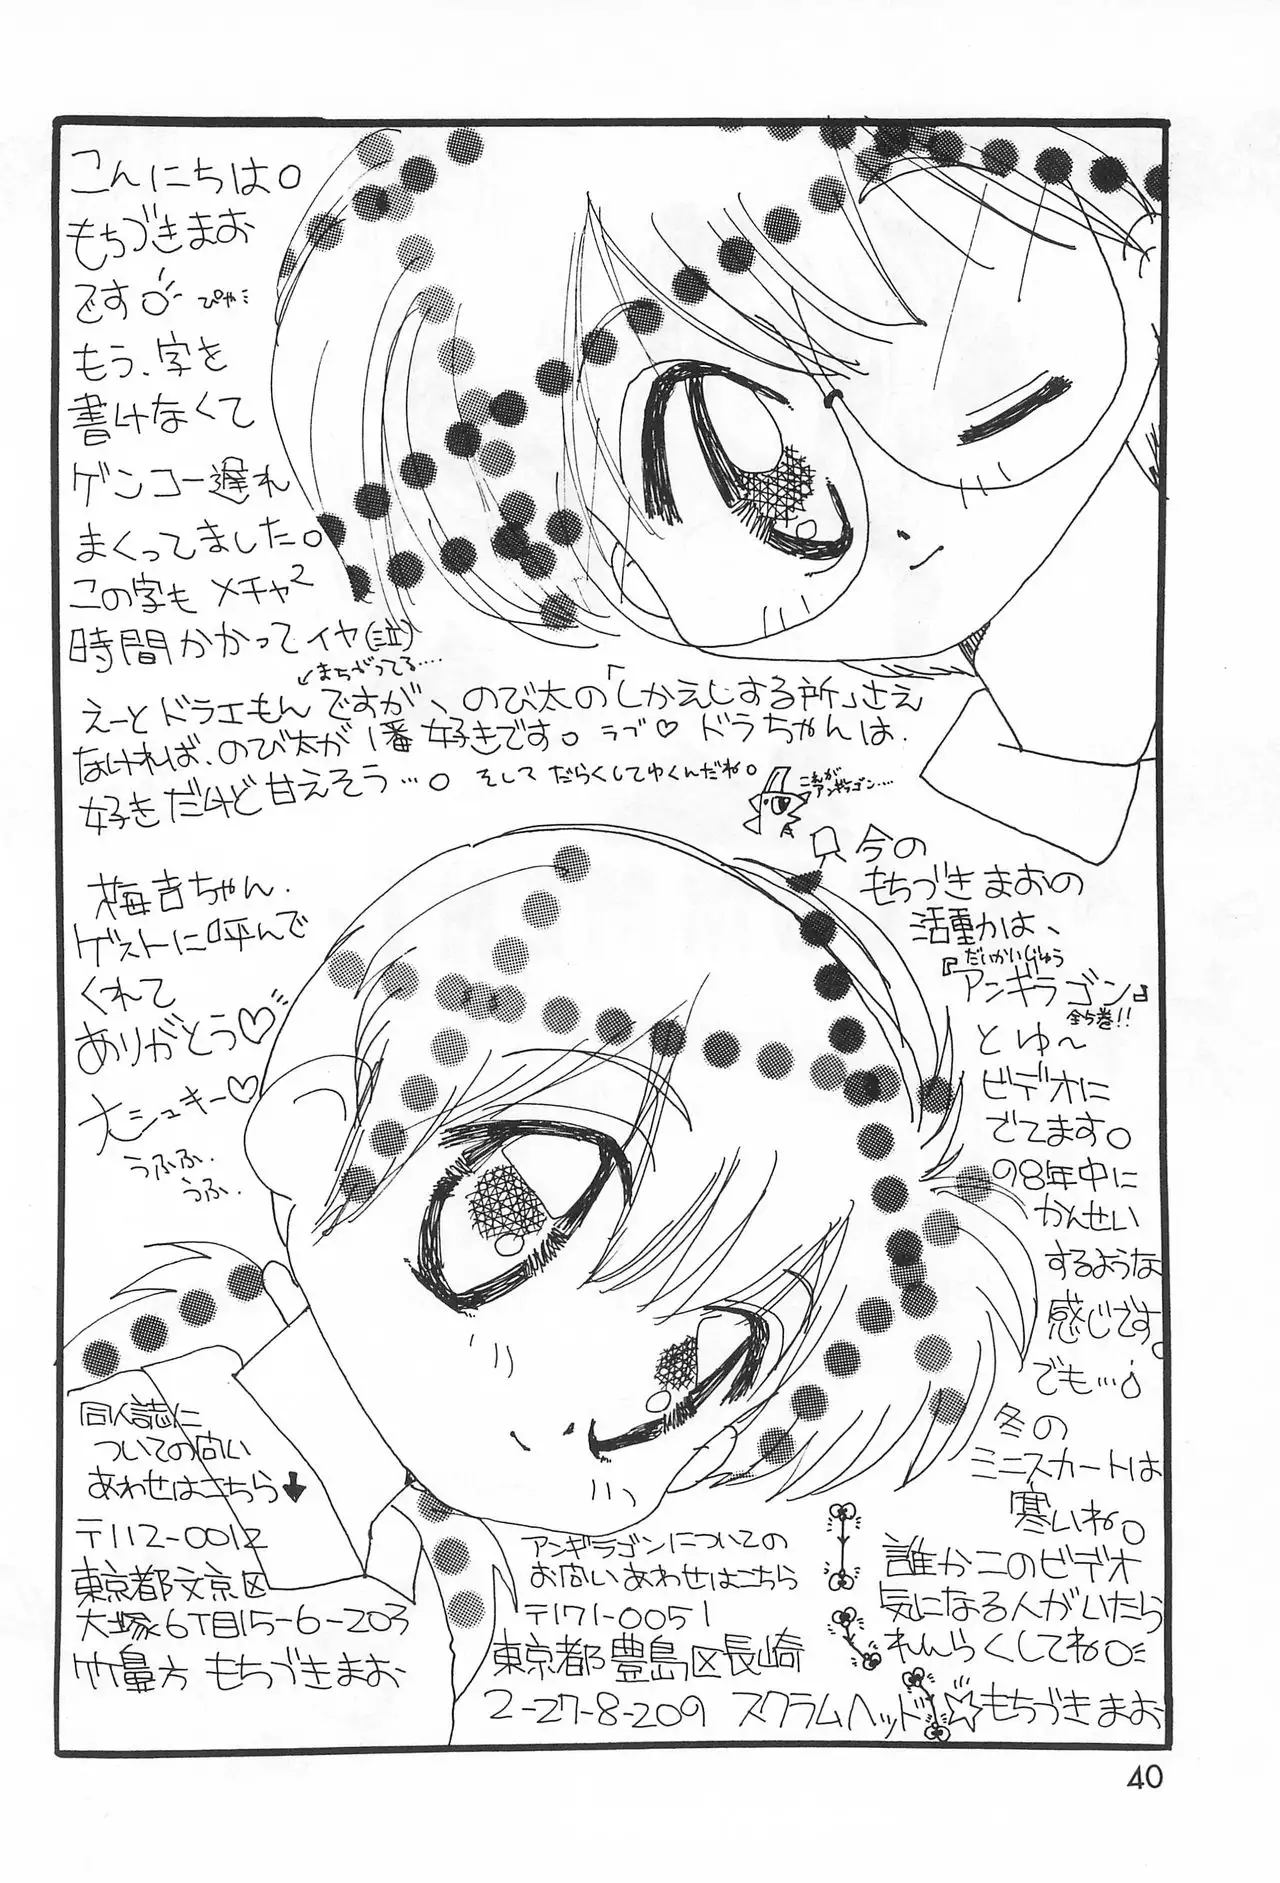 こんにちは。
もちづきまお
です ぴゃ
もう、字を
書けなくて
ゲンコー遅れ
まくってました。
この字も メチャ2
時間かかってイヤ(泣)
まちがってる....
えーと ドラエもんですが、のび太の「しかえしする所」さえ
なければ、のび太が1番 好きです。ラブ♡ ドラちゃんは、
好きだけど甘えそう…。そして だらくしてゆくんだね。
これが
アンギラゴン....
梅吉ちゃん、
ゲストに呼んで
くれて
ありがとう♡
大シュキー♡
うふふ、
うふ、
今の
もちづきまおの
活動かは、
だいかいじゅう
『アンギラゴン』
全5巻!!
とゆ〜
ビデオに
でてます。
98年中に
かんせい
するような
感じです。
でも…
冬の
ミニスカートは
寒いね。
誰かこのビデオ
気になる人がいたら
れんらくしてね
もちづきまお
同人誌に
ついての問い
あわせはこちら↓
〒112-0012
東京都文京区
大塚6丁目15-6-203
竹量方 もちづきまお
アンギラゴンについての
お問いあわせはこちら
〒171-0051
東京都豊島区長崎
2-27-8-209 スクラムヘッド
40